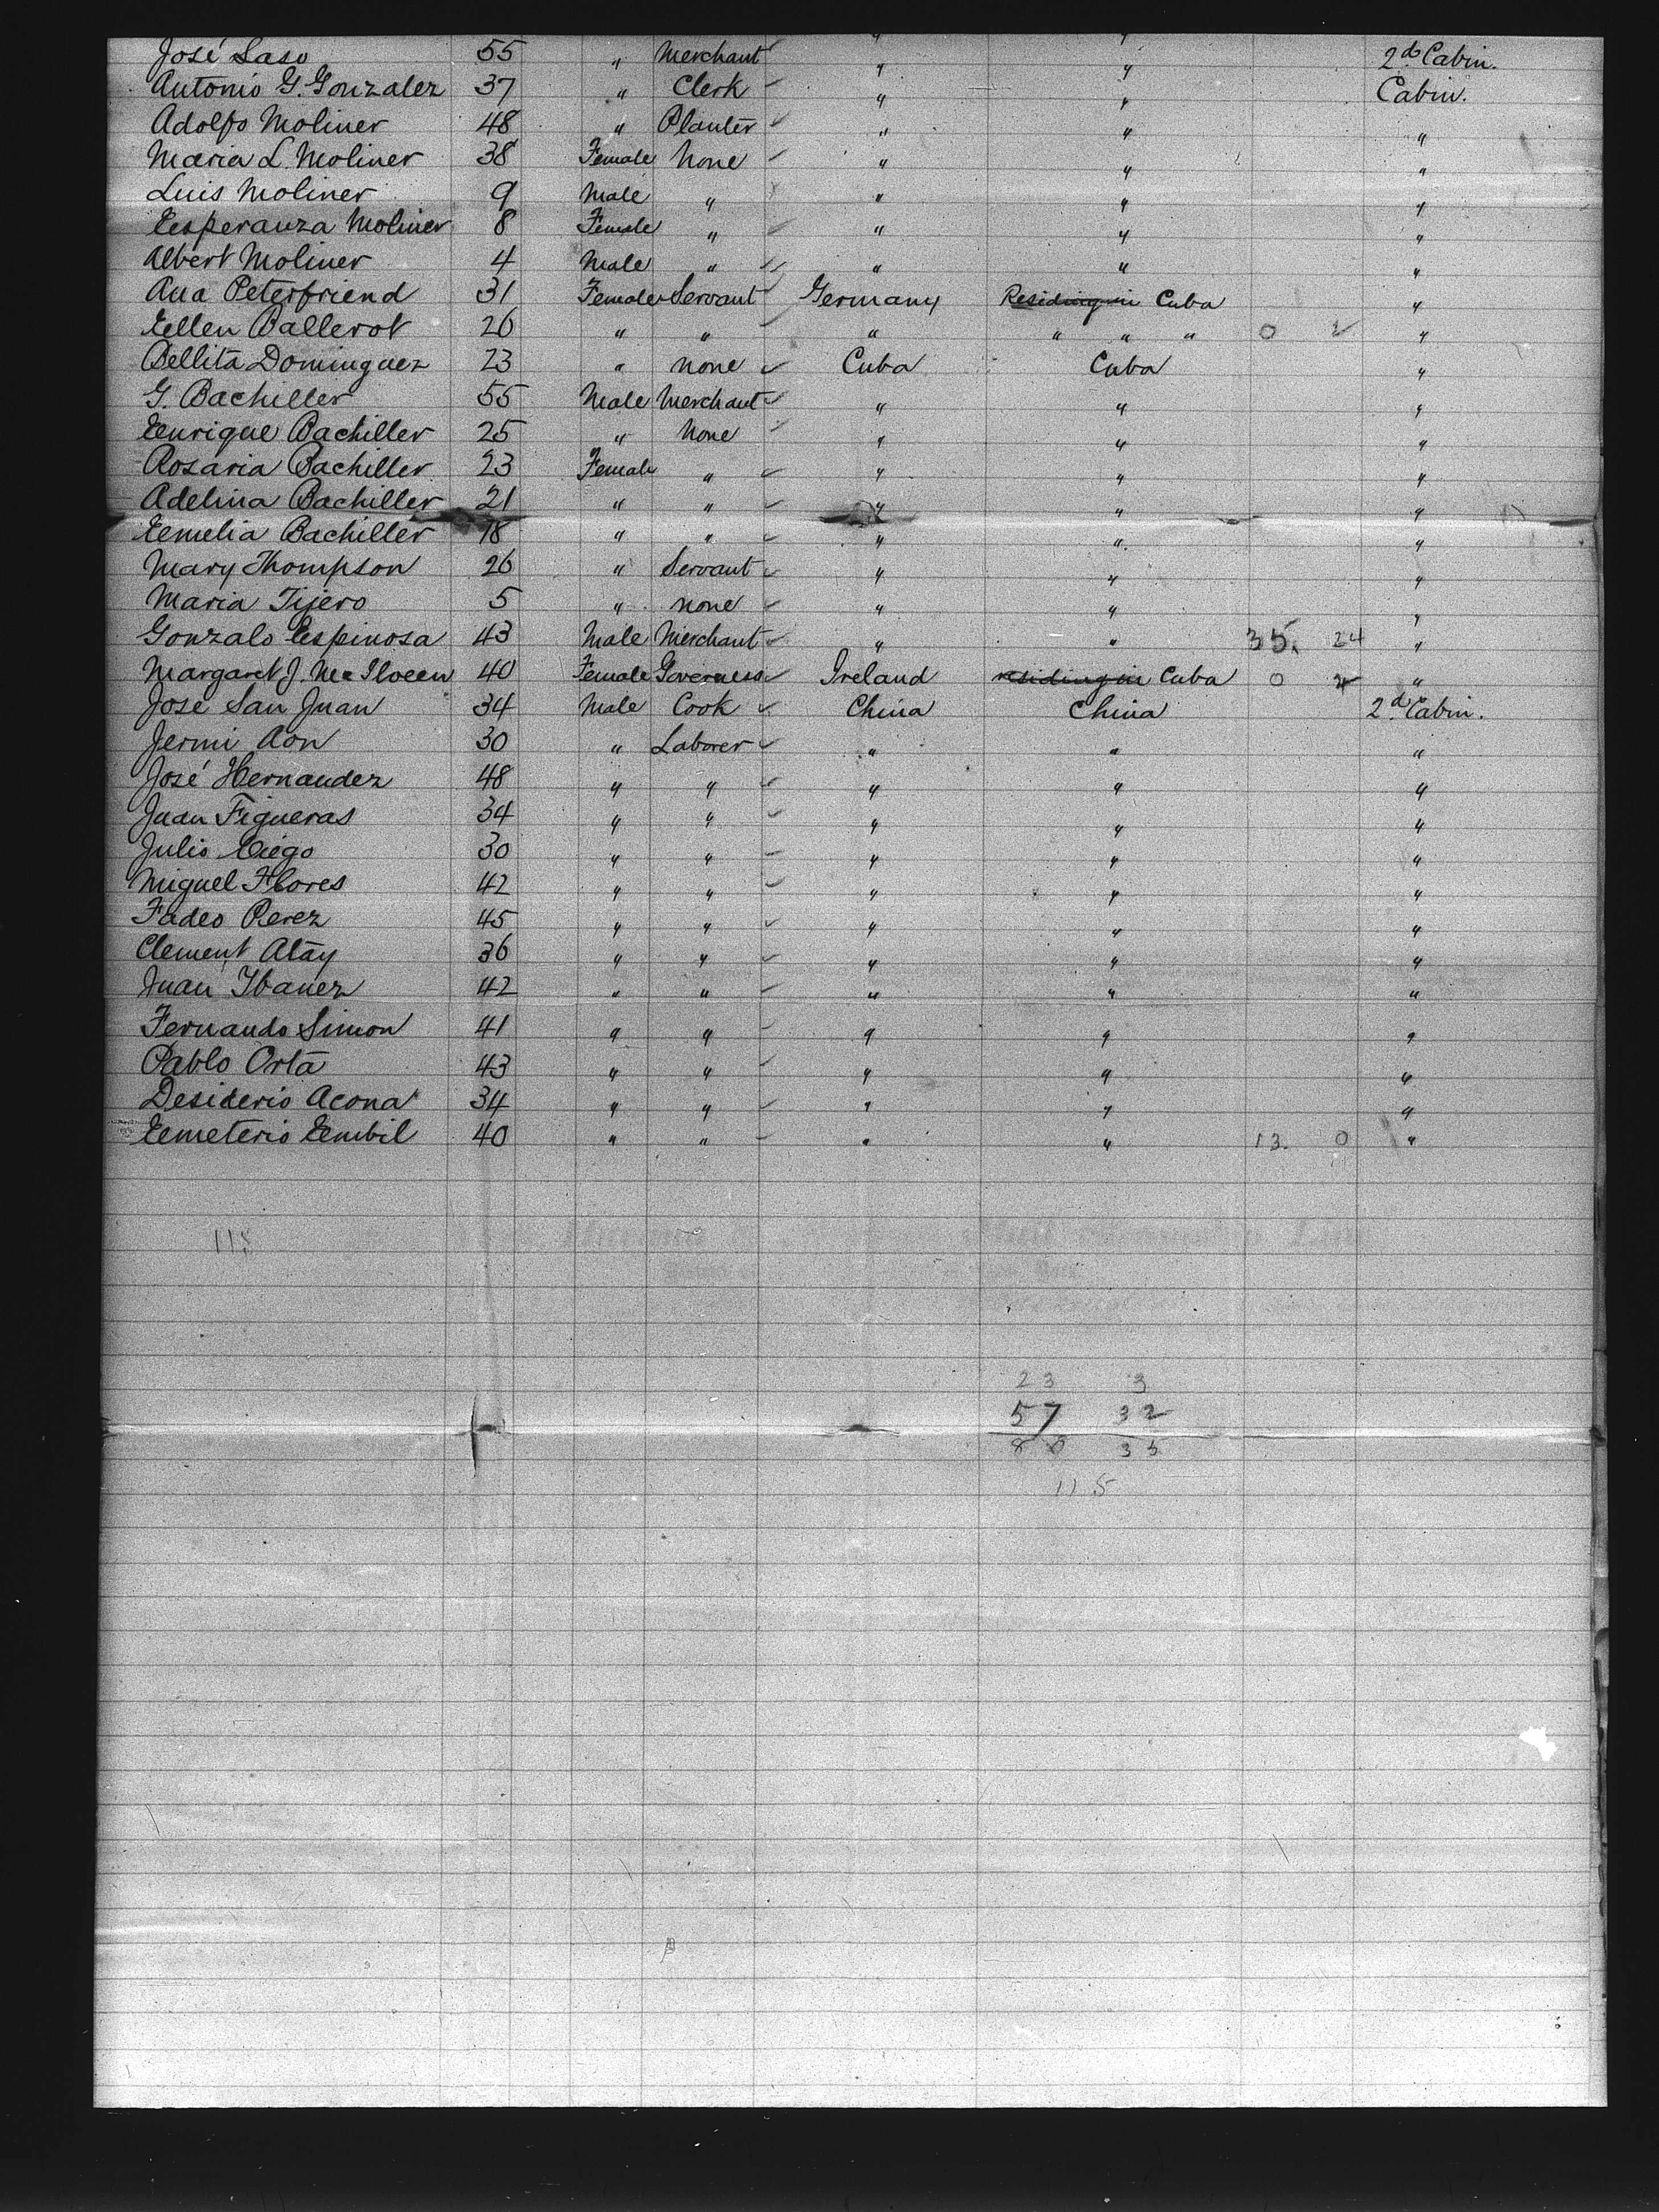 José Laso 55 " Merchant " " 2d. Cabin.
Antonio G. Gonzalez 37 " Clerk " " Cabin.
Adolfo Moliner 48 " Planter " " "
Maria L. Moliner 38 Female None " " "
Luis Moliner 9 Male " " " "
Esperanza Moliner 8 Female " " " "
Albert Moliner 4 Male " " " "
Ana Peterfriend 31 Female Servant Germany Residing in Cuba "
Ellen Ballerot 26 " " " " " " 0 2 "
Bellita Dominguez 23 " none Cuba Cuba "
G. Bachiller 55 Male Merchant " " "
Enrique Bachiller 25 " None " " "
Rosaria Bachiller 23 Female " " " "
Adelina Bachiller 21 " " " " "
Emelia Bachiller 18 " " " " "
Mary Thompson 26 " Servant " " "
Maria Tijero 5 " none " " "
Gonzalo Espinosa 43 Male Merchant " " 35. 24 "
Margaret J. Mc Ilveen 40 Female Governess Ireland residing in Cuba 0 "
José San Juan 34 Male Cook China China 2d. Cabin.
Jermi Aon 30 " Laborer " " "
José Hernandez 48 " " " " "
Juan Figueras 34 " " " " "
Julio Ciego 30 " " " " "
Miguel Flores 42 " " " " "
Fadeo Perez 45 " " " " "
Clement Atay 36 " " " " "
Juan Ibanez 42 " " " " "
Fernando Simon 41 " " " " "
Pablo Orta 43 " " " " "
Desiderio Acona 34 " " " " "
Emeterio Embil 40 " " " " 13. 0 "
115
23 3
57 32
80 35
115